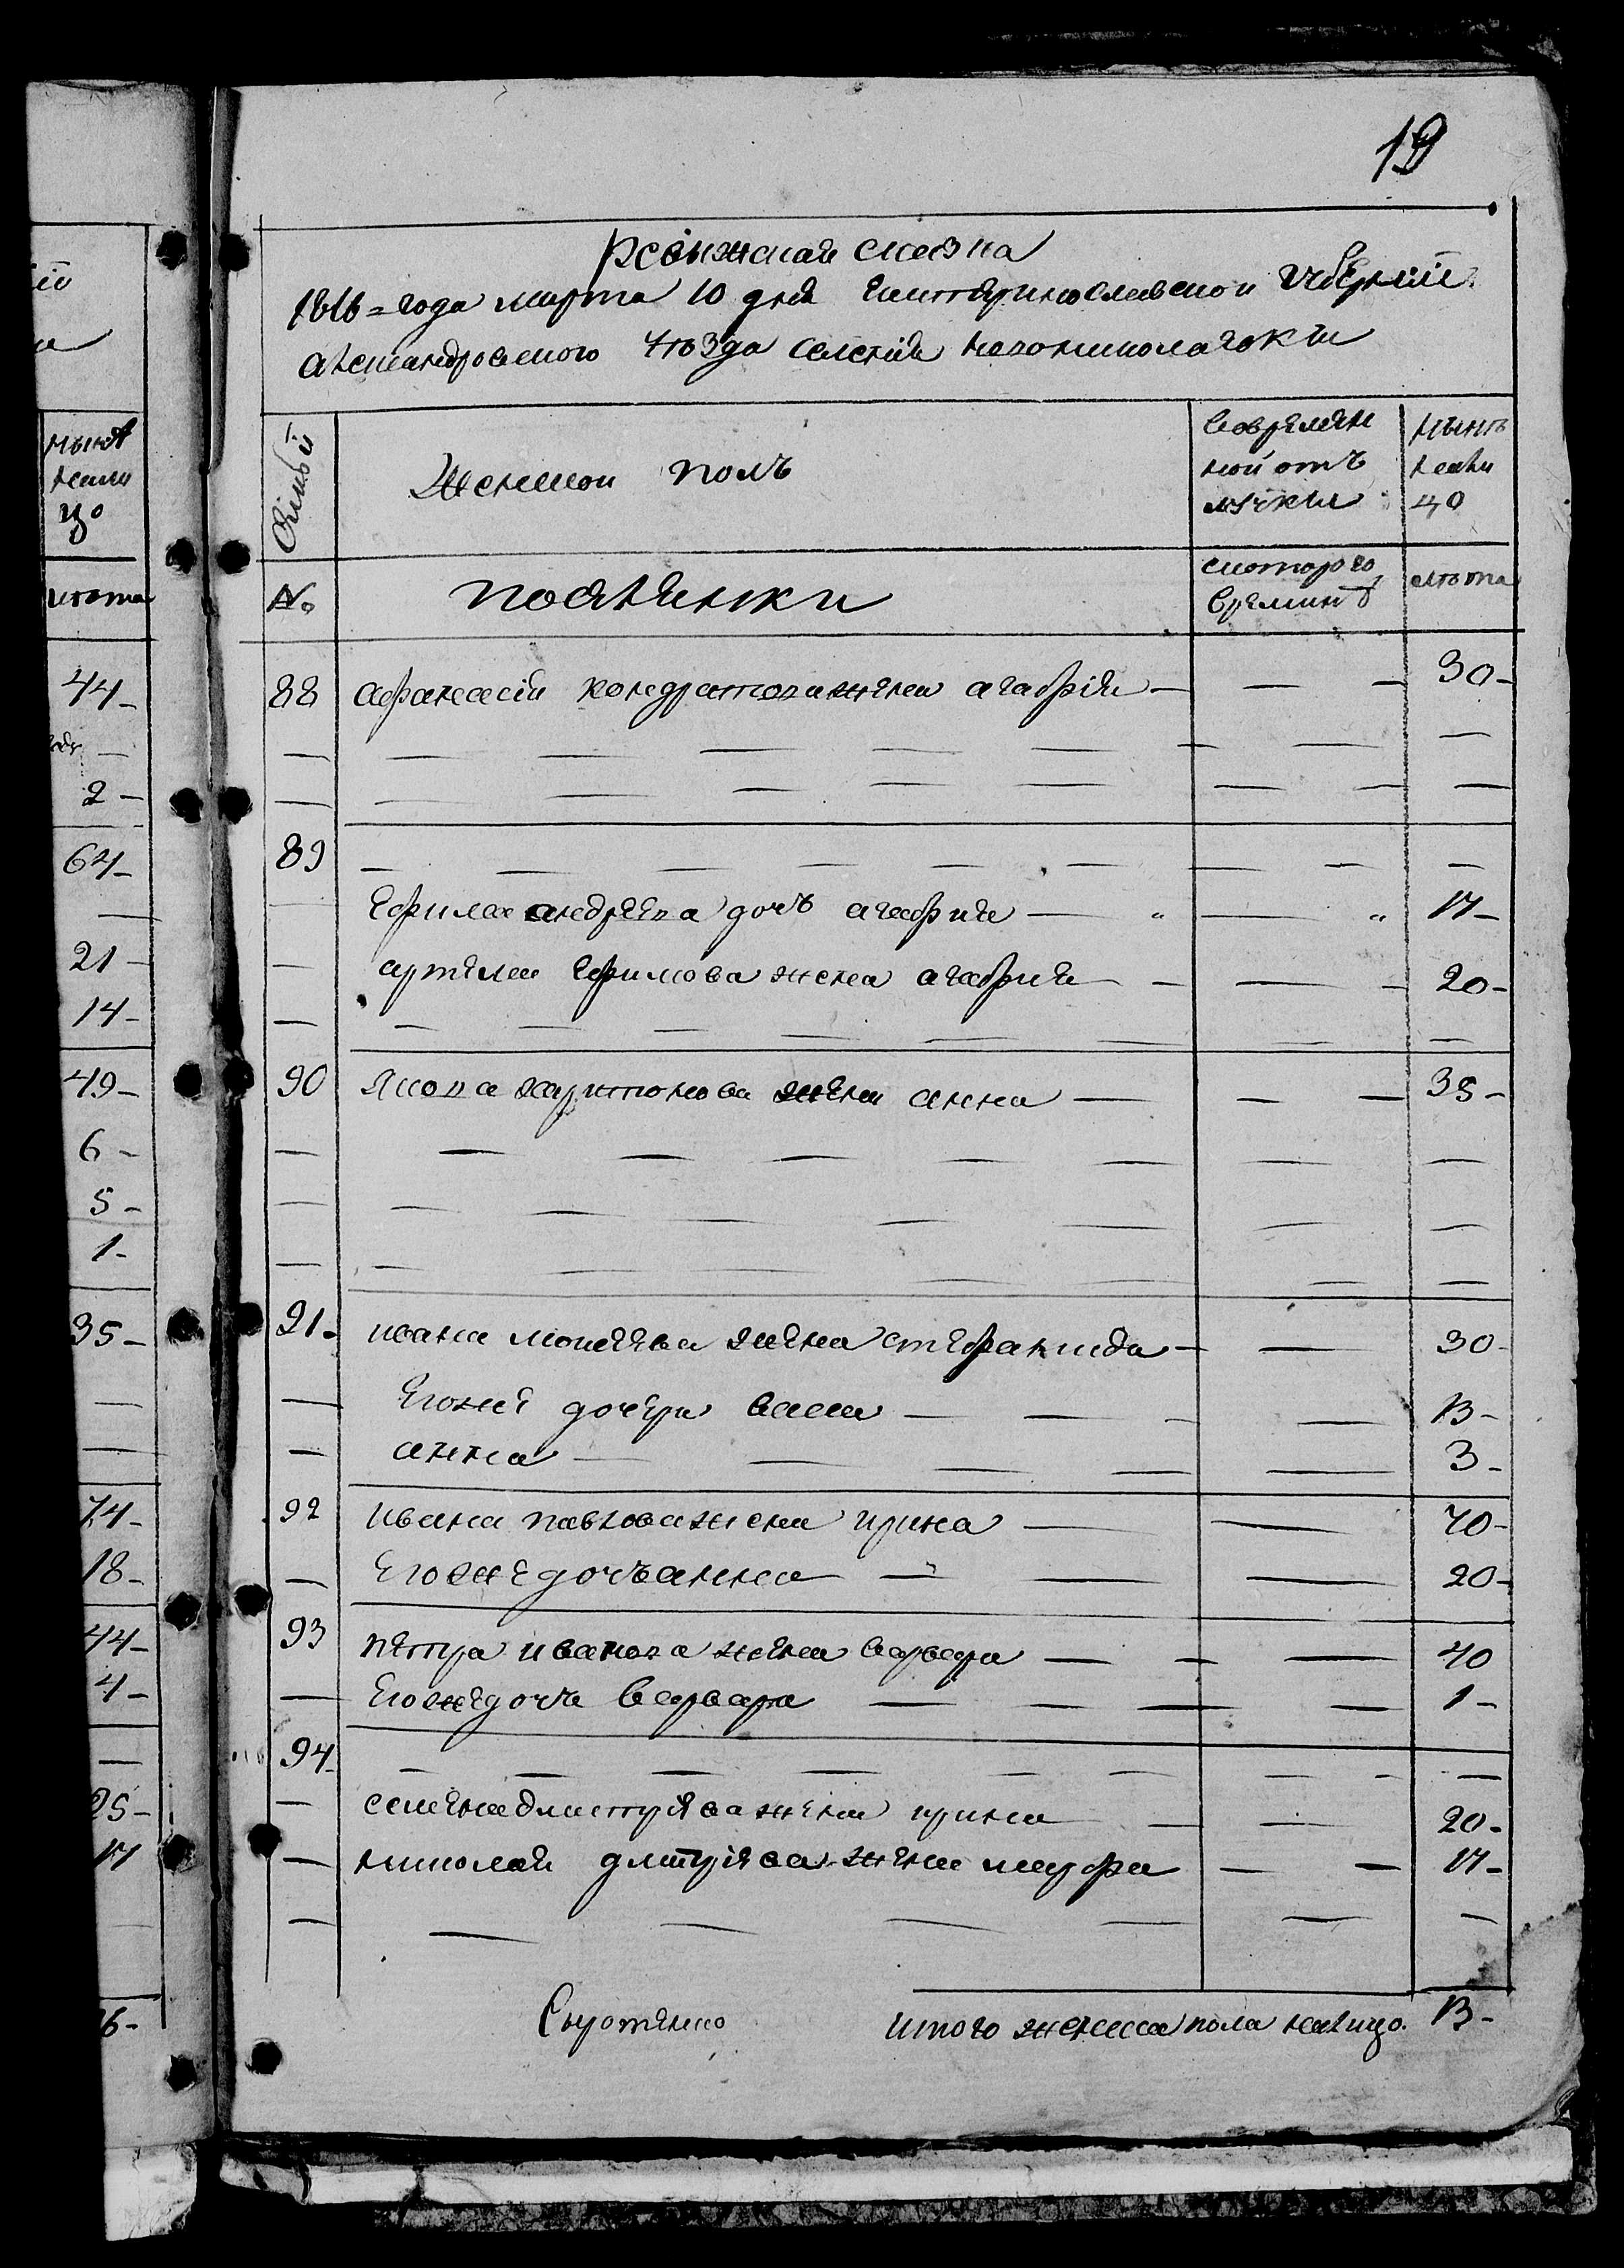 19
ревижская сказка
1816 = года марта 10 дня екатеринославской губернии
александровского уезда селения новониколаевки
нынѣ
нали
цо
лѣта
44-
2-
64-
21-
14-
49-
6-
5-
1-
35-
74-
18-
44-
4-
25-
17
6-
Семьи
женской полъ
вовремян
ной отъ
лучки
нынѣ
нали
цо
№
поселянки
скоторого
времини
лѣта
88 афанасия кондратова жена агафия — 30-
89
Ефима андреева дочъ агафия — 17-
артема Ефимова жена агафия — 20-
90 Якова харитонова жена анна — 35-
91. ивана мокеева жена стефанида — 30-
Егоже дочери васса — 13-
анна — 3-
92 ивана павлова жена ирина — 40-
Егоже дочъ анна — 20-
93 петра иванова жена варвара — 40
Егоже дочъ варвара — 1-
94-
семена дмитриева жена ирина — 20-
николая дмитриева жена мавра — 17-
Сыротенко
итого женска пола налицо. 13-